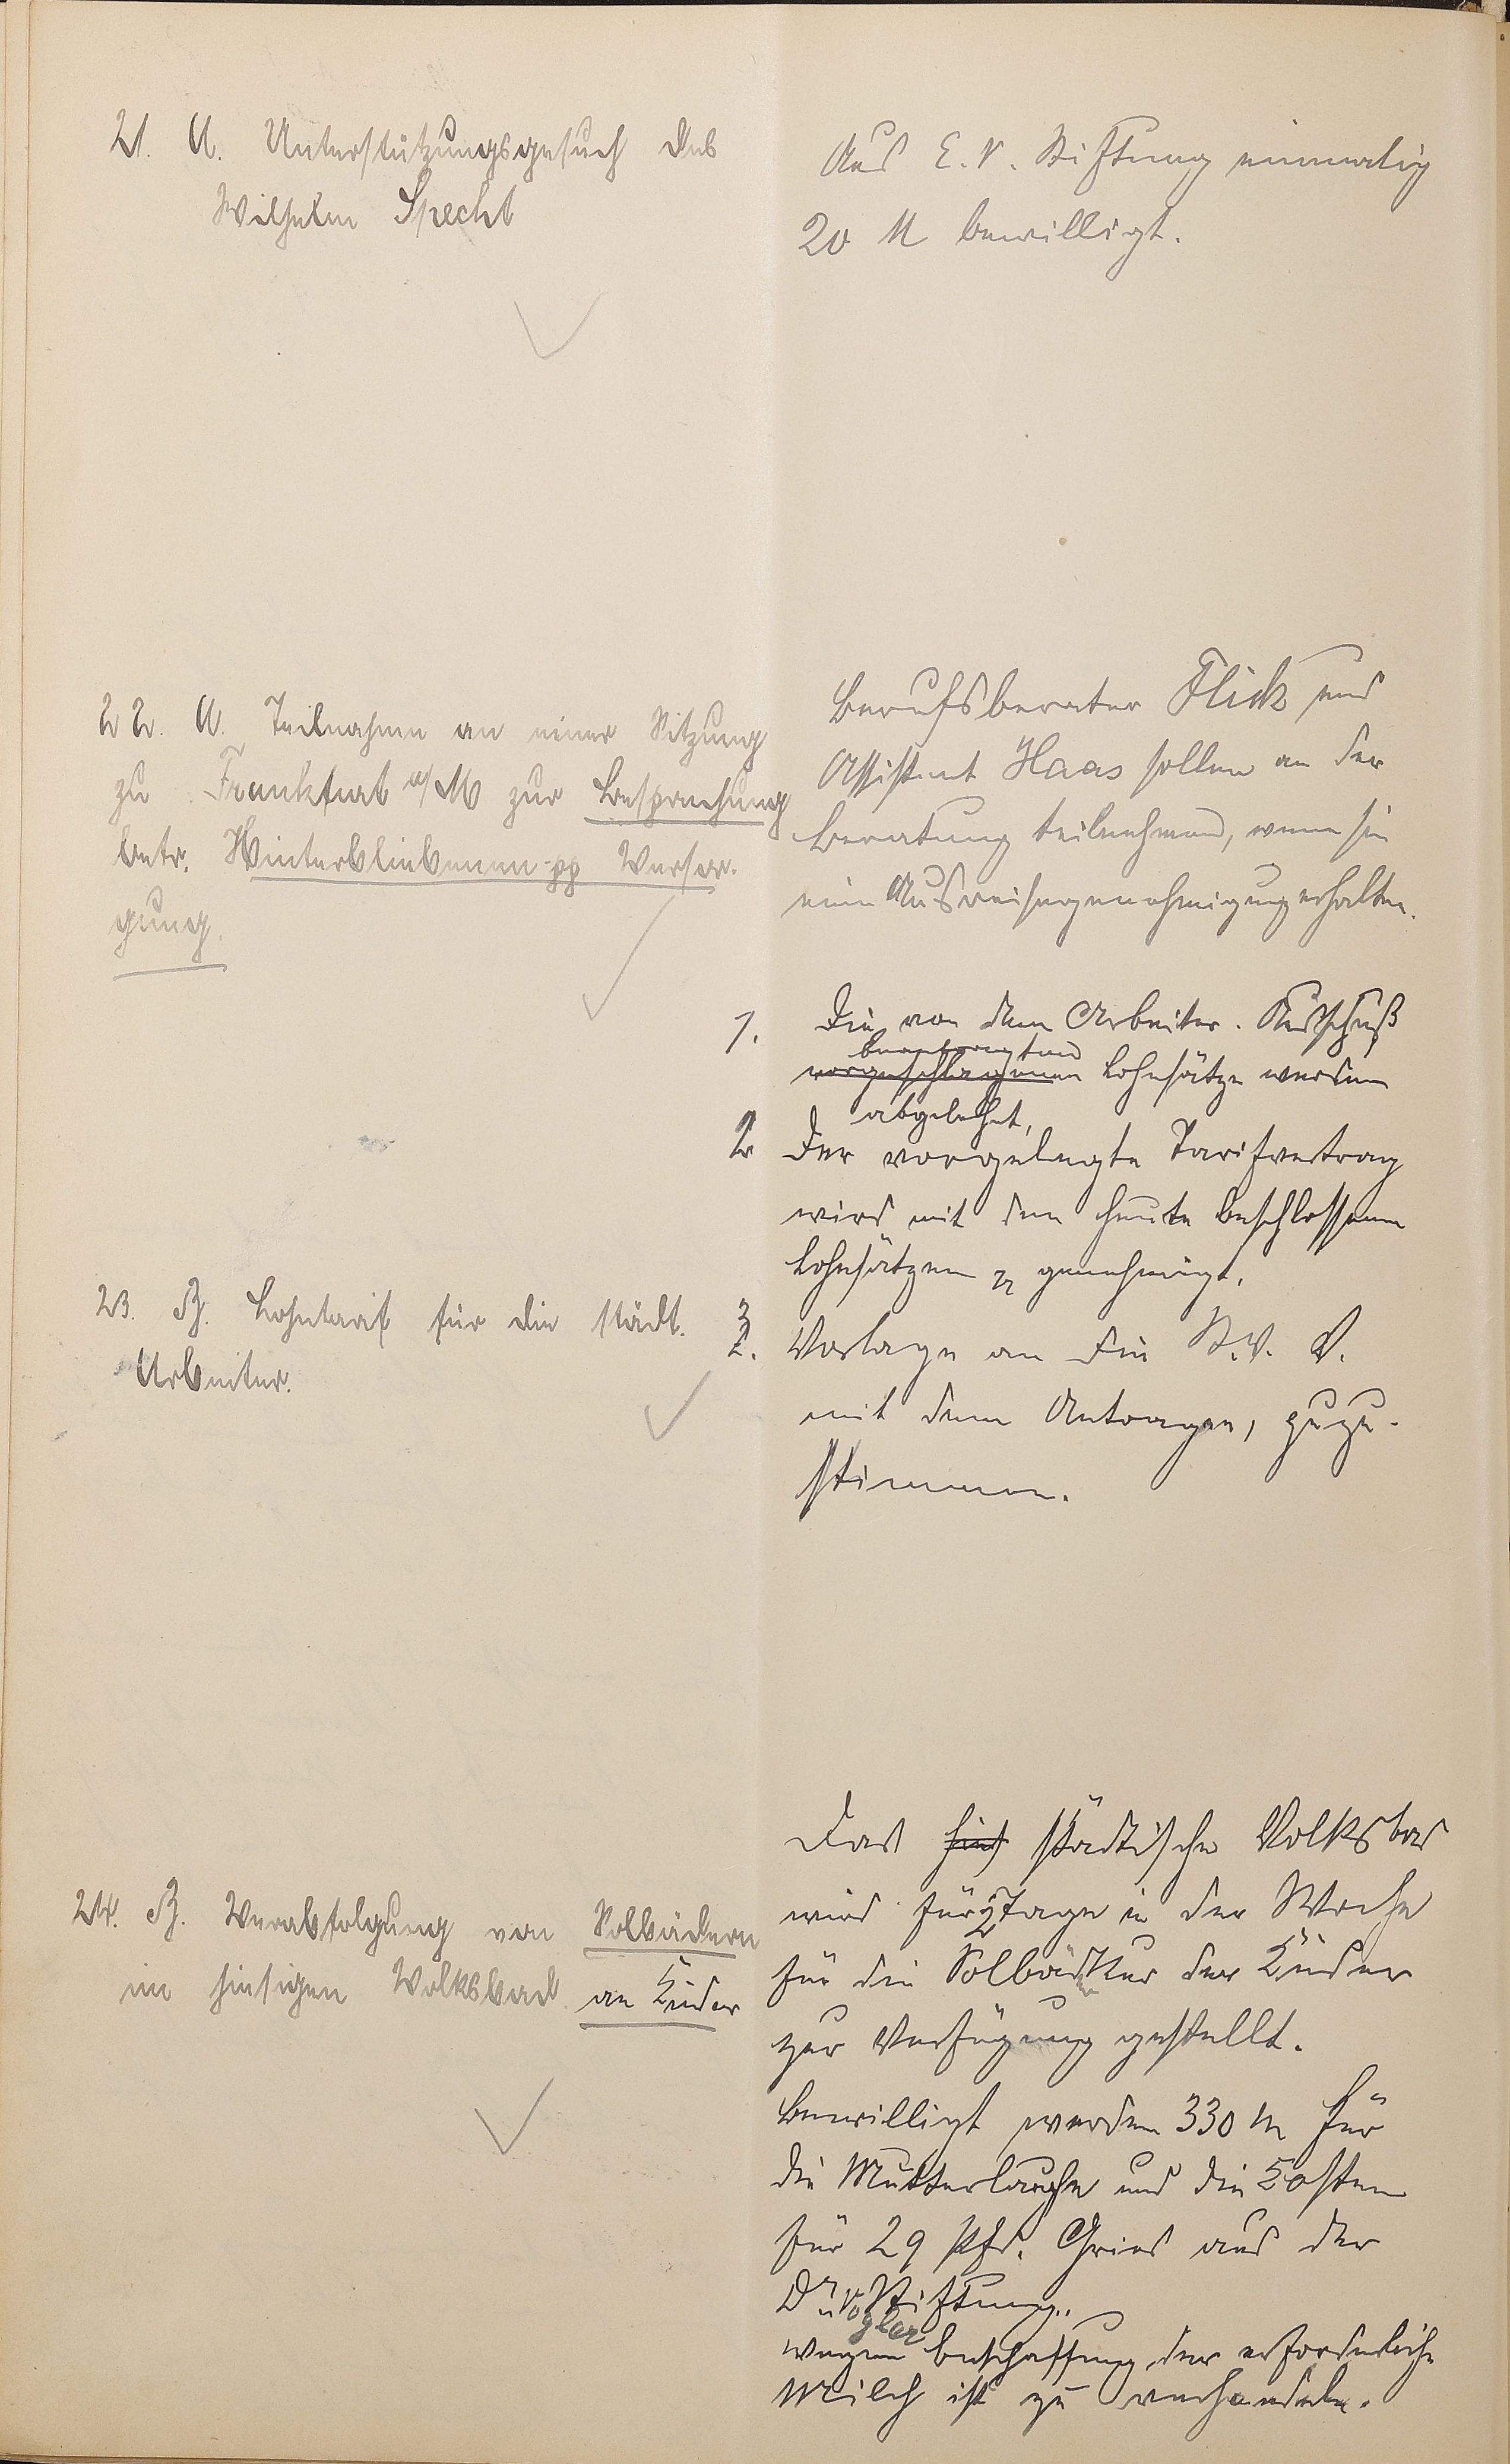 21. A. Unterstützungsgesuch des
Wilhelm Specht
Aus E. V. Stiftung einmalig
20 M bewilligt.
22. A. Teilnahme an einer Sitzung
zu Frankfurt a/M zur Besprechung
betr. Hinterbliebenen-pp Versor-
gung.
Berufsberater Flick und
Assistent Haas sollen an der
Beratung teilnehmen, wenn sie
eine Ausreisegenehmigung erhalten.
23. B. Lohntarif für die städt.
Arbeiter.
1. Die von dem Arbeiter-Ausschuß
beantragten
vorgeschlagenen Lohnsätze werden
abgelehnt,
2. Der vorgelegte Tarifvertrag
wird mit den heute beschlossenen
Lohnsätzen genehmigt.
3. Vorlage an die St. V. V.
mit dem Antrage, zuzu-
stimmen.
24. B. Verabfolgung von Solbädern
im hiesigen Volksbad an Kinder
Das städtische Volksbad
wird für 2 Tage in der Woche
für die Solbäderkur der Kinder
zur Verfügung gestellt.
Bewilligt werden 330 M für
die Mutterlauge und die Kosten
für 29 Pfd. Gries aus der
Dr. Vogler Stiftung.
wegen Beschaffung der erforderliche
Milch ist zu verhandeln.